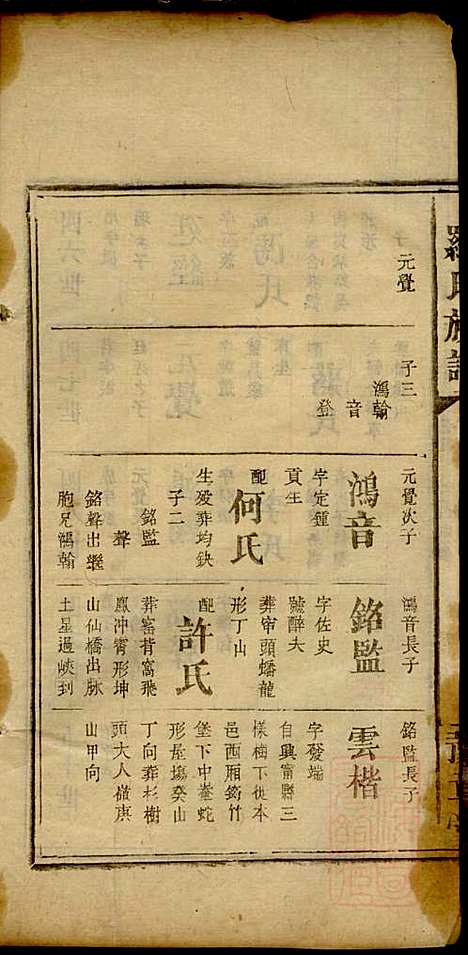 羅氏族譜
元覺
子三
鴻翰
音
登
元覺次子
鴻音
字定鍾
貢生
配何氏
生殁葬均缺
子二
銘監
聲
銘聲出繼
胞兄鴻翰
鴻音長子
銘監
字佐史
號醉夫
葬帘頭蟠龍
形丁山
配許氏
葬窰背窩飛
鳳冲霄形坤
山仙橋出脉
土星過峽到
銘監長子
雲楷
字發端
自興甯縣三
樣梅下徙本
邑西厢筠竹
堡下中崟蛇
形屋塲癸山
丁向葬杉樹
頭大人嶺庚
山甲向